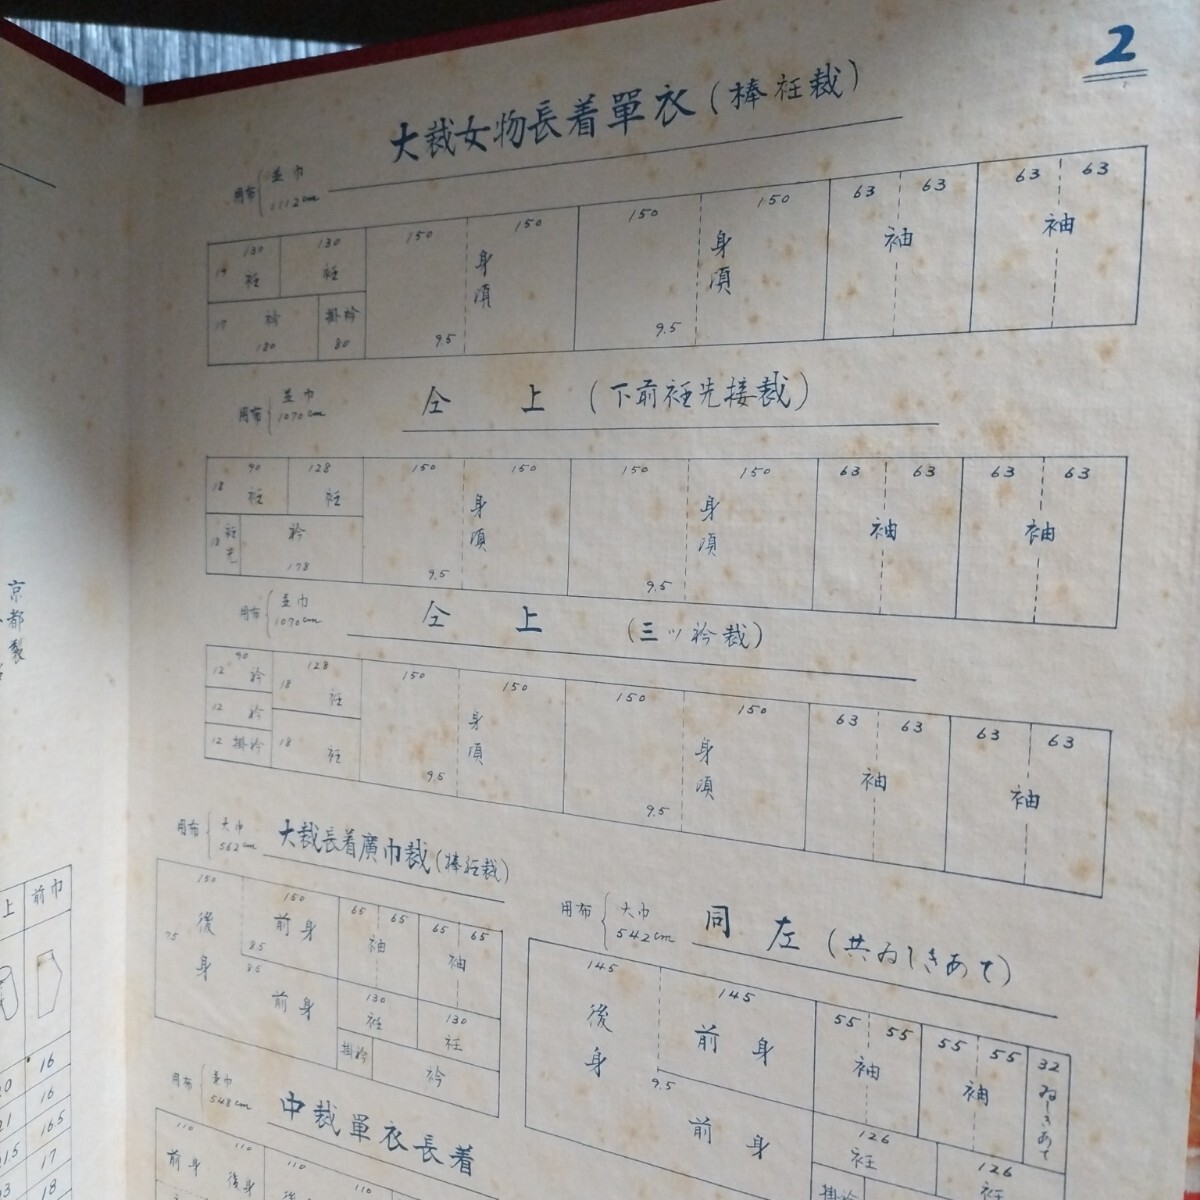 2
大裁女物長着單衣(棒衽裁)
用布 並巾 1112cm
130 130 150 150 150 150 63 63 63 63
14 衽 衽 身頃 身頃 袖 袖
17 衿 掛衿
180 80 9.5 9.5
仝上(下前衽先接裁)
用布 並巾 1070cm
90 128 150 150 150 150 63 63 63 63
18 衽 衽 身頃 身頃 袖 袖
18 衽先 衿
178 9.5 9.5
仝上(三ッ衿裁)
用布 並巾 1070cm
90 128 150 150 150 150 63 63 63 63
12 衿 18 衽 身頃 身頃 袖 袖
12 衿
12 掛衿 18 衽 9.5 9.5
大裁長着廣巾裁(棒衽裁)
用布 大巾 562cm
150 150 65 65 65 65
75 後身 前身 袖 袖
8.5
8.5 前身 130 衽 130 衽
掛衿 衿
同左(共ゐしきあて)
用布 大巾 542cm
145 145 55 55 55 55 32
後身 前身 袖 袖 ゐしきあて
9.5 前身 126 衽 126 衽
掛衿
中裁單衣長着
用布 並巾 548cm
110 110 110 110
前身 後身
京都製
上 前巾
16
16
165
17
18